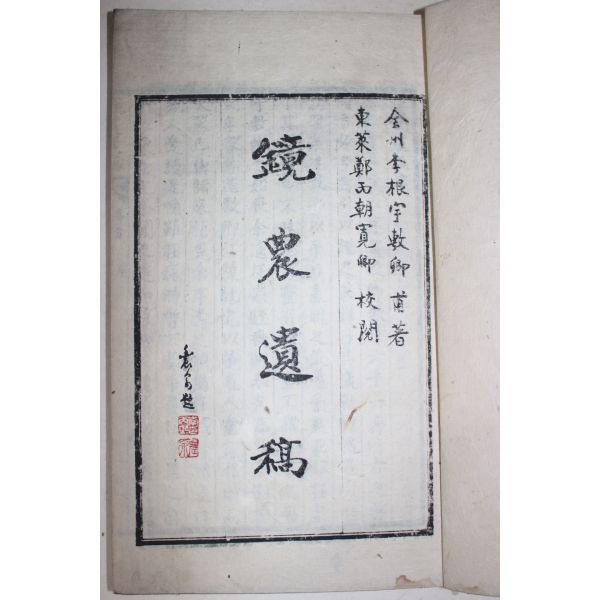 全州李根宇敷卿甫著
東萊鄭丙朝寬卿校閱
鏡農遺稿